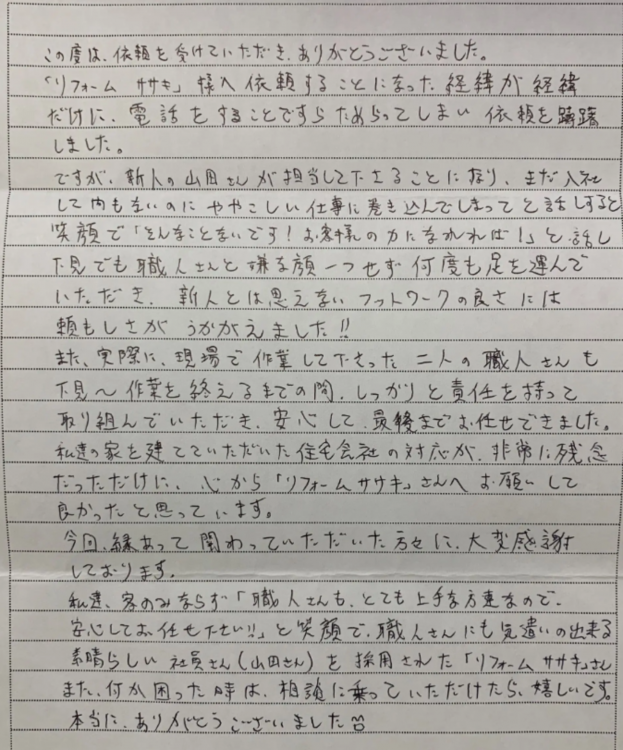 この度は、依頼を受けていただき、ありがとうございました。
「リフォーム ササキ」様へ依頼することになった経緯が経緯
だけに、電話をすることですらためらってしまい依頼を躊躇
しました。
ですが、新人の山田さんが担当して下さることになり、まだ入社
して内もないのにややこしい仕事に巻き込んでしまってと話しすると
笑顔で「そんなことないです!お客様の力になれれば!」と話し
下見でも職人さんと嫌な顔一つせず何度も足を運んで
いただき、新人とは思えないフットワークの良さには
頼もしさがうかがえました!!
また、実際に、現場で作業して下さった二人の職人さんも
下見〜作業を終えるまでの間、しっかりと責任を持って
取り組んでいただき、安心して最後までお任せできました。
私達の家を建てていただいた住宅会社の対応が、非常に残念
だっただけに、心から「リフォームササキ」さんへお願いして
良かったと思っています。
今回、縁あって関わっていただいた方々に、大変感謝
しております。
私達、家のみならず「職人さんも、とても上手な方達なので、
安心してお任せ下さい!!」と笑顔で、職人さんにも気遣いの出来る
素晴らしい社員さん(山田さん)を採用された「リフォームササキ」さん
また、何か困った時は、相談に乗っていただけたら、嬉しいです。
本当に、ありがとうございました